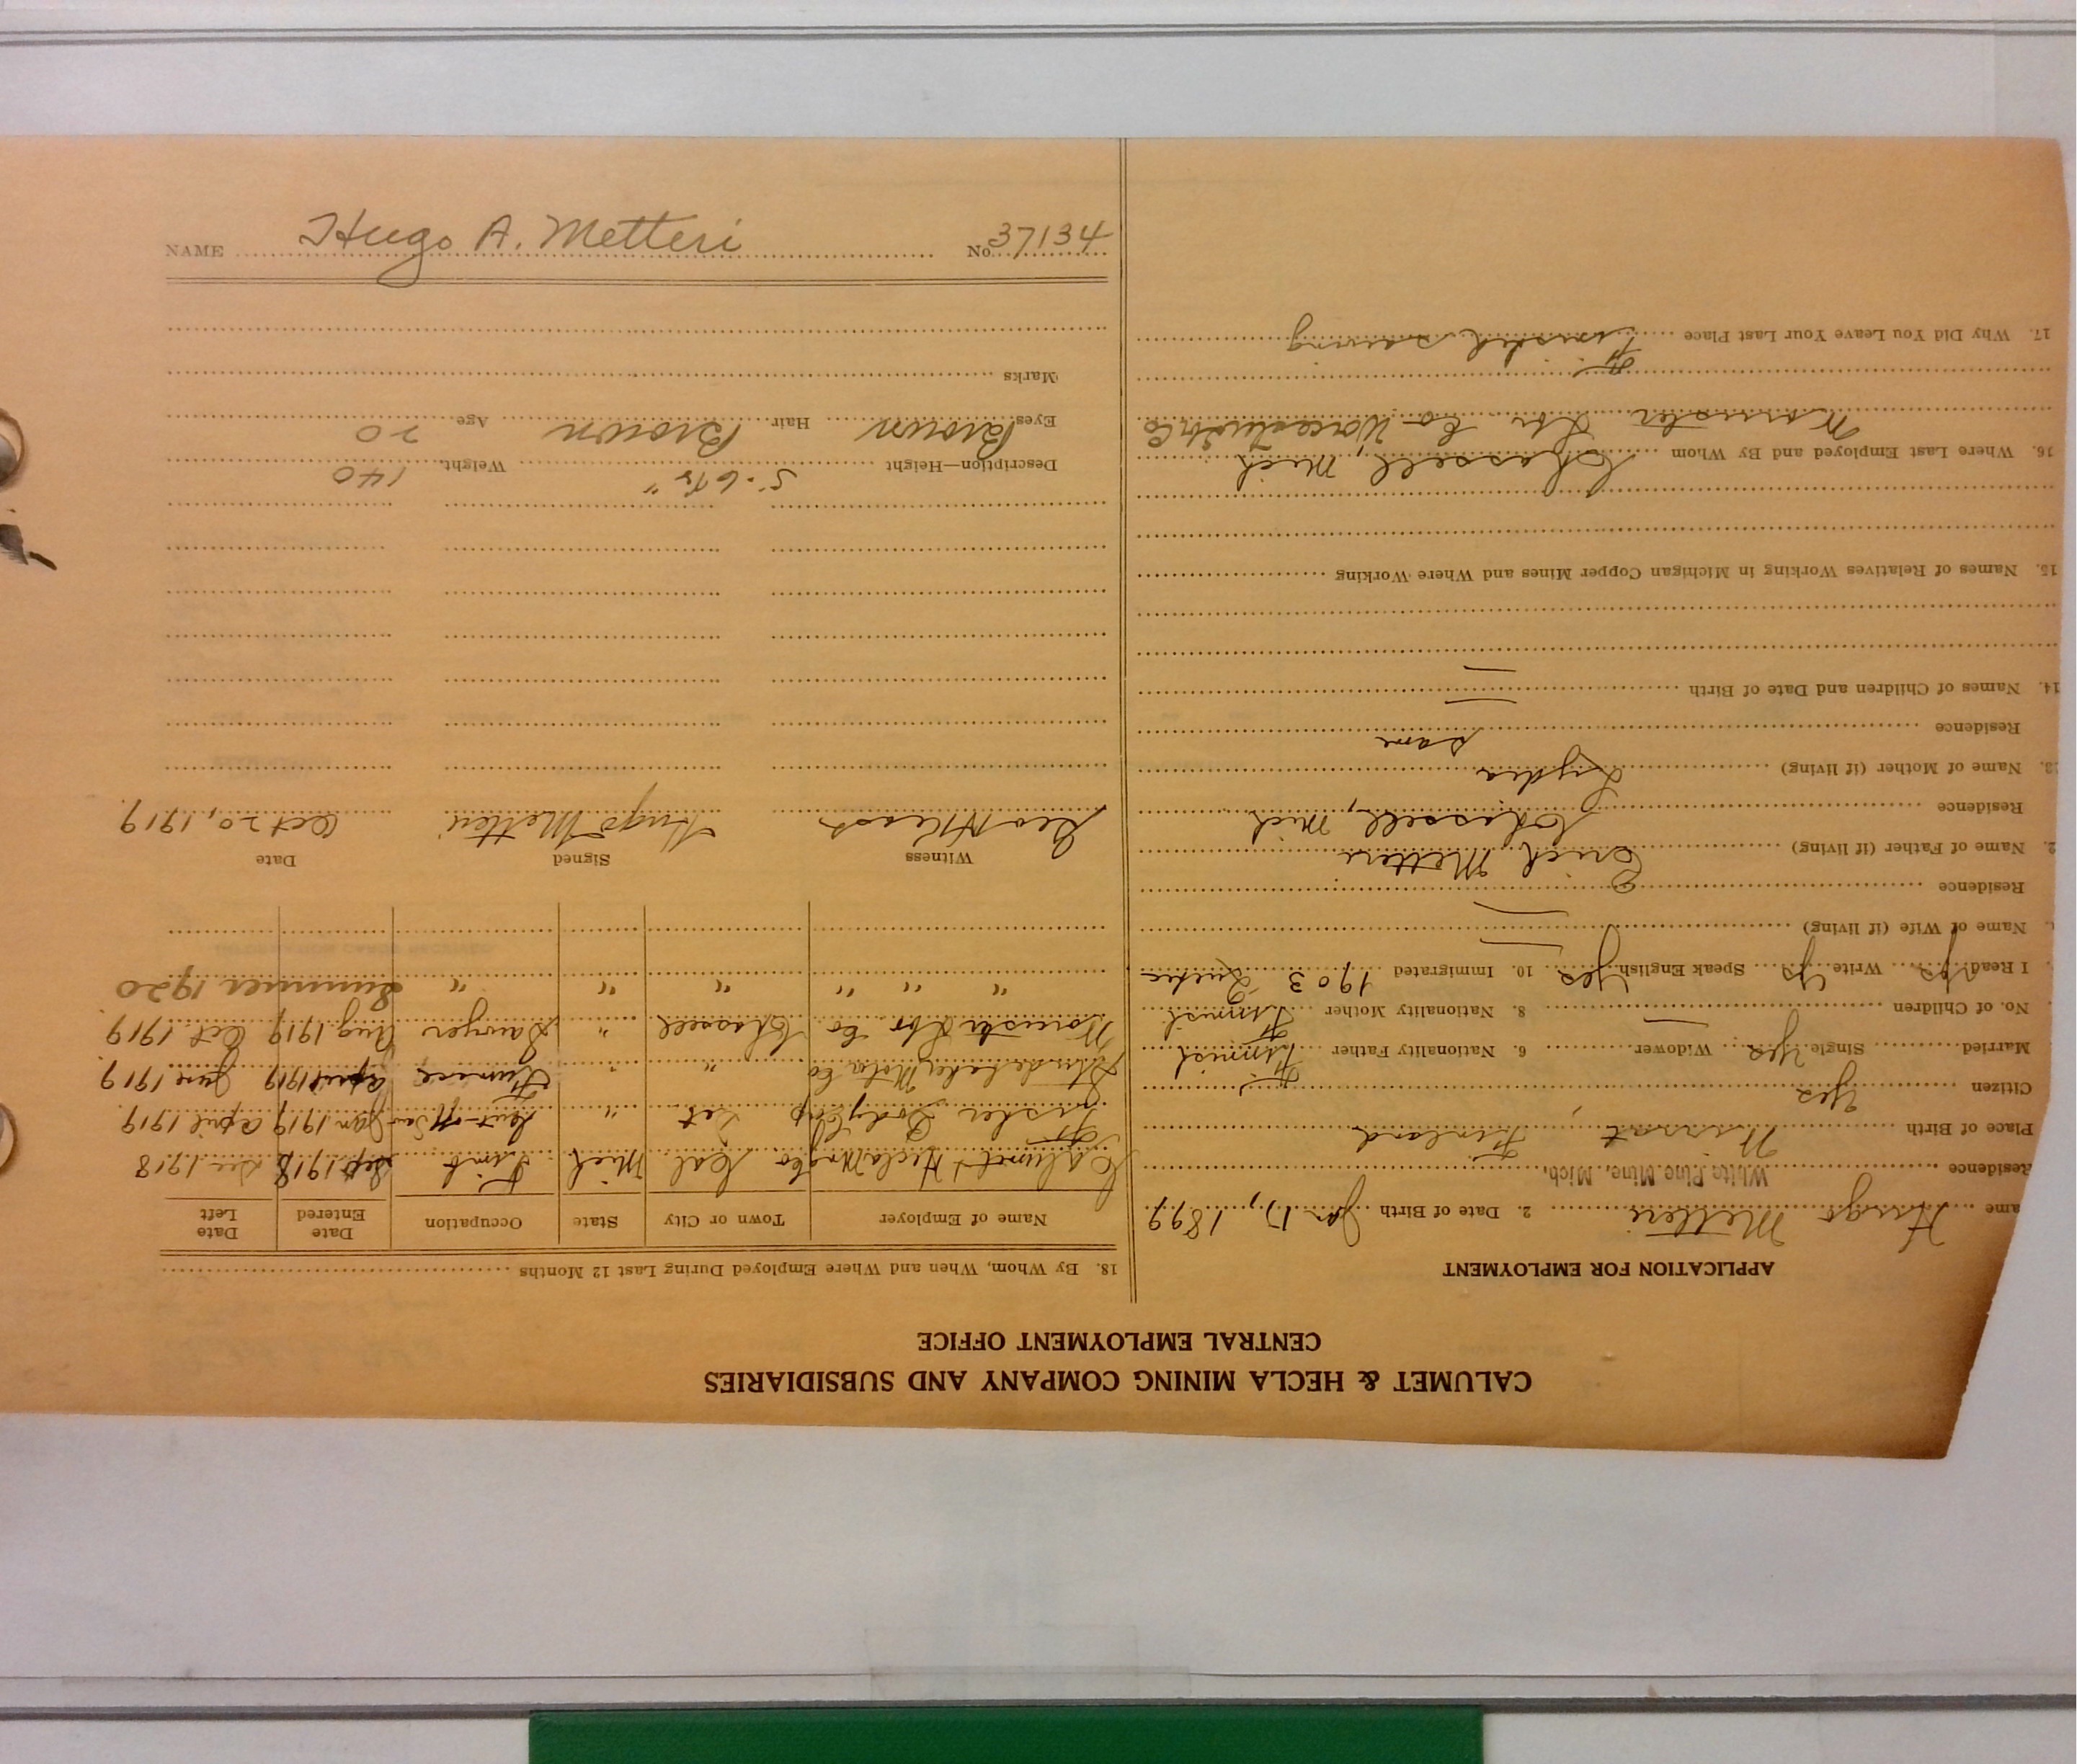 CALUMET & HECLA MINING COMPANY AND SUBSIDIARIES
CENTRAL EMPLOYMENT OFFICE
APPLICATION FOR EMPLOYMENT
ame Hugo Metteri 2. Date of Birth Jan 17, 1899
Residence White Pine Mine, Mich.
Place of Birth Finland
Citizen Yes
Married Single Yes Widower 6. Nationality Father Finnish
No. of Children — 8. Nationality Mother Finnish
I Read yes Write yes Speak English yes 10. Immigrated 1903 Quebec
Name of Wife (if living) —
Residence —
2. Name of Father (if living) Erich Metteri
Residence Chassell, Mich
3. Name of Mother (if living) Lydia
Residence same
14. Names of Children and Date of Birth —
15. Names of Relatives Working in Michigan Copper Mines and Where Working
16. Where Last Employed and By Whom Chassell, Mich
Worcester Lbr. Co
17. Why Did You Leave Your Last Place Finished sawing
18. By Whom, When and Where Employed During Last 12 Months
Name of Employer Town or City State Occupation Date Entered Date Left
Calumet & Hecla Mng Co Cal Mich Timb Sep 1918 Dec 1918
Fisher Body Corp Det " Jan 1919 April 1919
Studebaker Motor Co " " Furnace April 1919 June 1919
Worcester Lbr Co Chassell " Sawyer Aug 1919 Oct 1919
" " " " " " " Summer 1920
Witness Signed Date
Geo Hugo Metteri Oct 20, 1919
Description—Height 5'-6½" Weight 140
Eyes Brown Hair Brown Age 20
Marks
NAME Hugo A. Metteri No. 37134